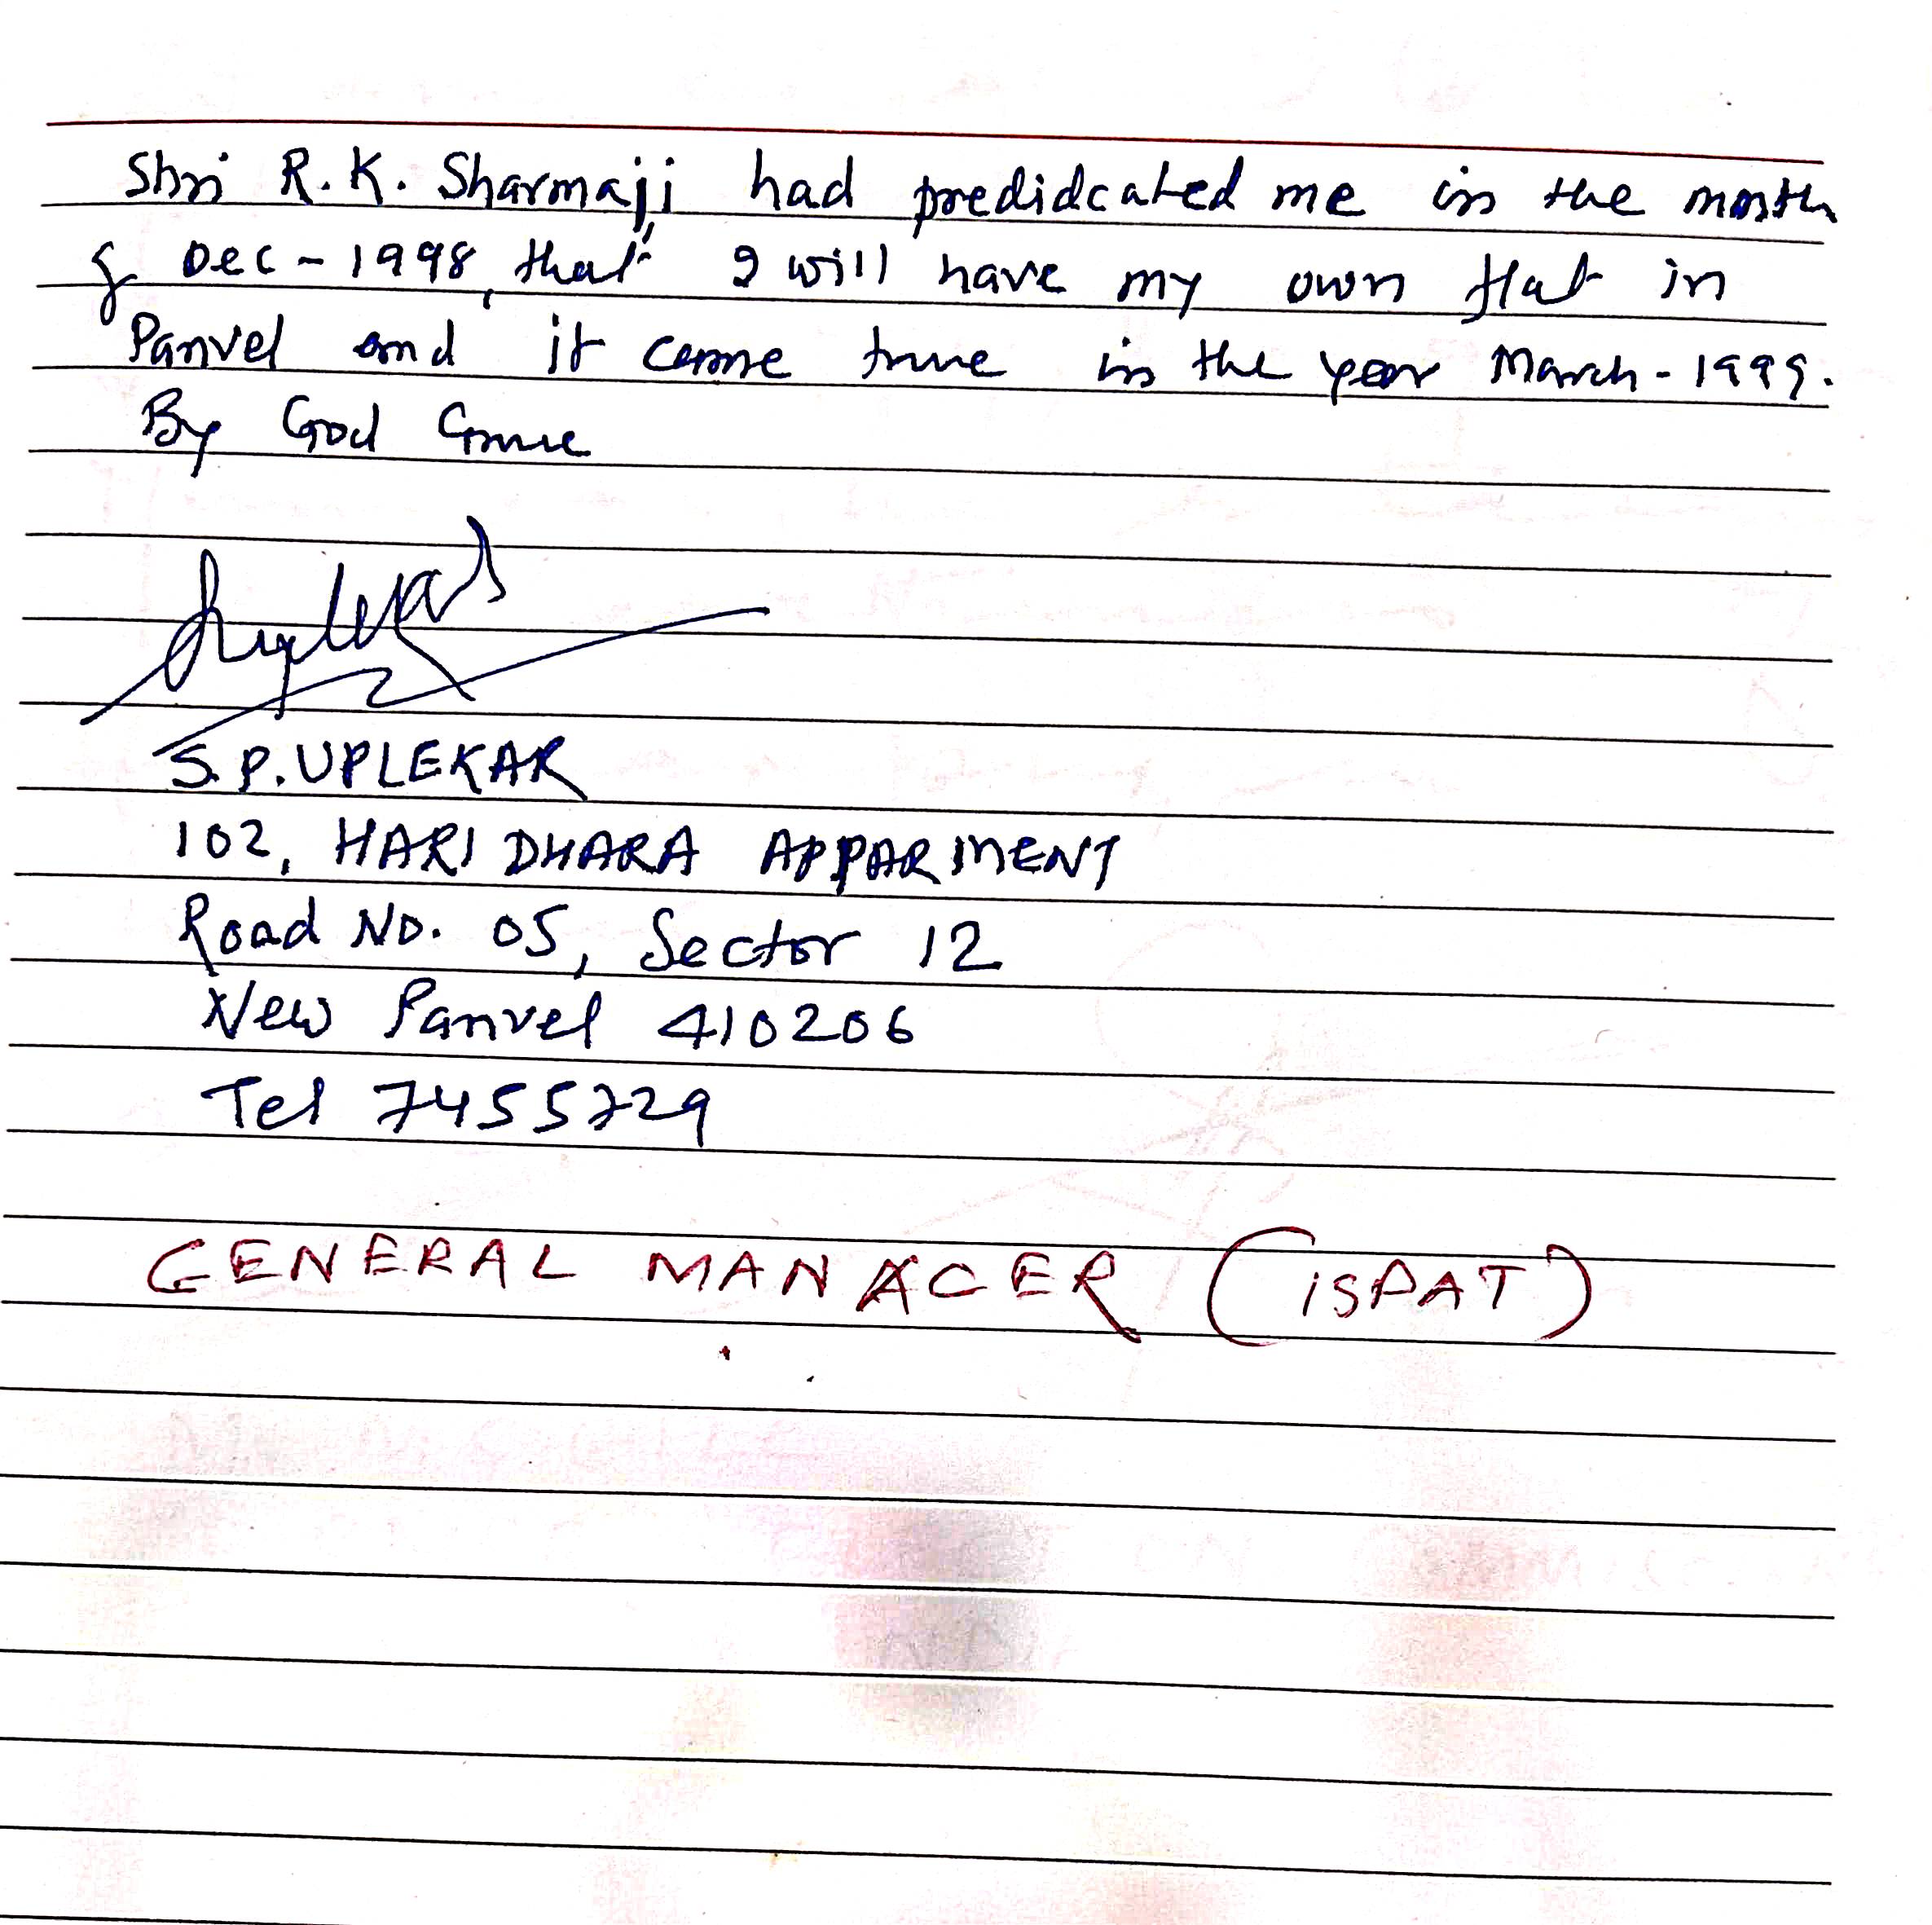 Shri R.K. Sharmaji had predidcated me in the month
of Dec - 1998, that I will have my own flat in
Panvel and it came true in the year March - 1999.
By God Grace
S.P. UPLEKAR
102, HARI DHARA APPARMENT
Road No. 05, Sector 12
New Panvel 410206
Tel 7455729
GENERAL MANAGER (ISPAT)